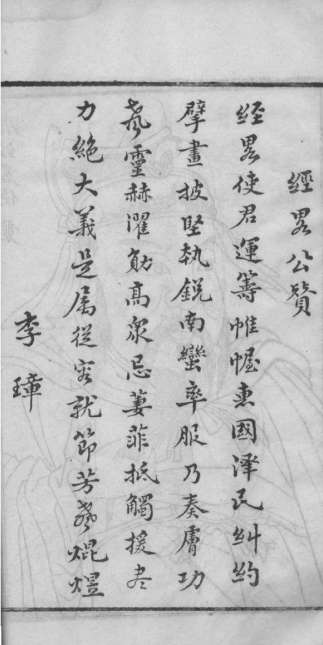 經畧公贊
經畧使君運籌帷幄惠國澤民糾約
擘畫披堅執銳南蠻率服乃奏膚功
聲靈赫濯勛高衆忌萋菲抵觸援盡
力絶大義是属從容就節芳聲焜煜
李璋